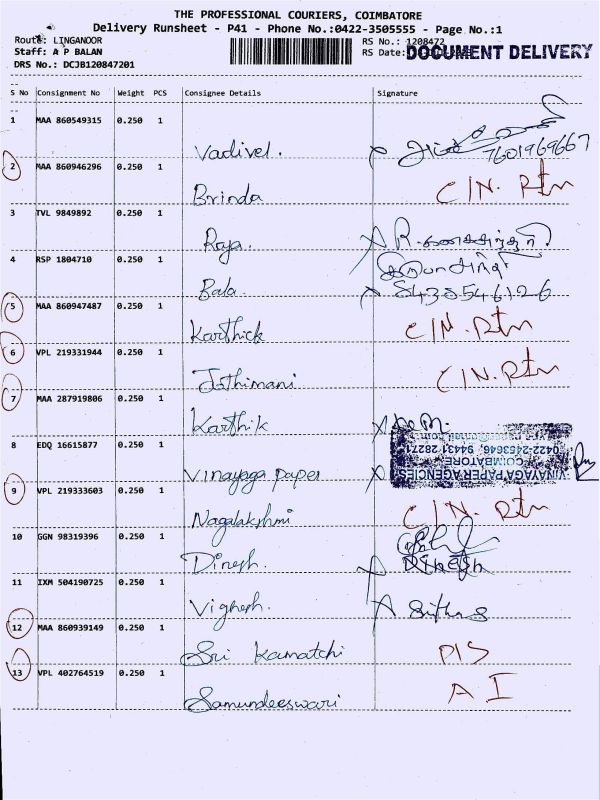 THE PROFESSIONAL COURIERS, COIMBATORE
Delivery Runsheet - P41 - Phone No.:0422-3505555 - Page No.:1
Route: LINGANOOR RS No.: 1208472
Staff: A P BALAN RS Date: DOCUMENT DELIVERY
DRS No.: DCJB120847201
S No Consignment No Weight PCS Consignee Details Signature
1 MAA 860549315 0.250 1
Vadivel. 7601969667
2 MAA 860946296 0.250 1
Brinda C/N. Rtn
3 TVL 9849892 0.250 1
Raja R.
4 RSP 1804710 0.250 1
Bala. 8438546126
5 MAA 860947487 0.250 1
Karthick C/N. Rtn
6 VPL 219331944 0.250 1
Jothimani C/N. Rtn
7 MAA 287919806 0.250 1
Karthik
8 EDQ 16615877 0.250 1
Vinayaga paper
VINAYAGA PAPER AGENCIES
COIMBATORE
0422-2453646, 94431 28271
9 VPL 219333603 0.250 1
Nagalakshmi C/N. Rtn
10 GGN 98319396 0.250 1
Dinesh. Dinesh
11 IXM 504190725 0.250 1
Vighesh.
12 MAA 860939149 0.250 1
Sri Kamatchi D/S
13 VPL 402764519 0.250 1
Samundeeswari A.I